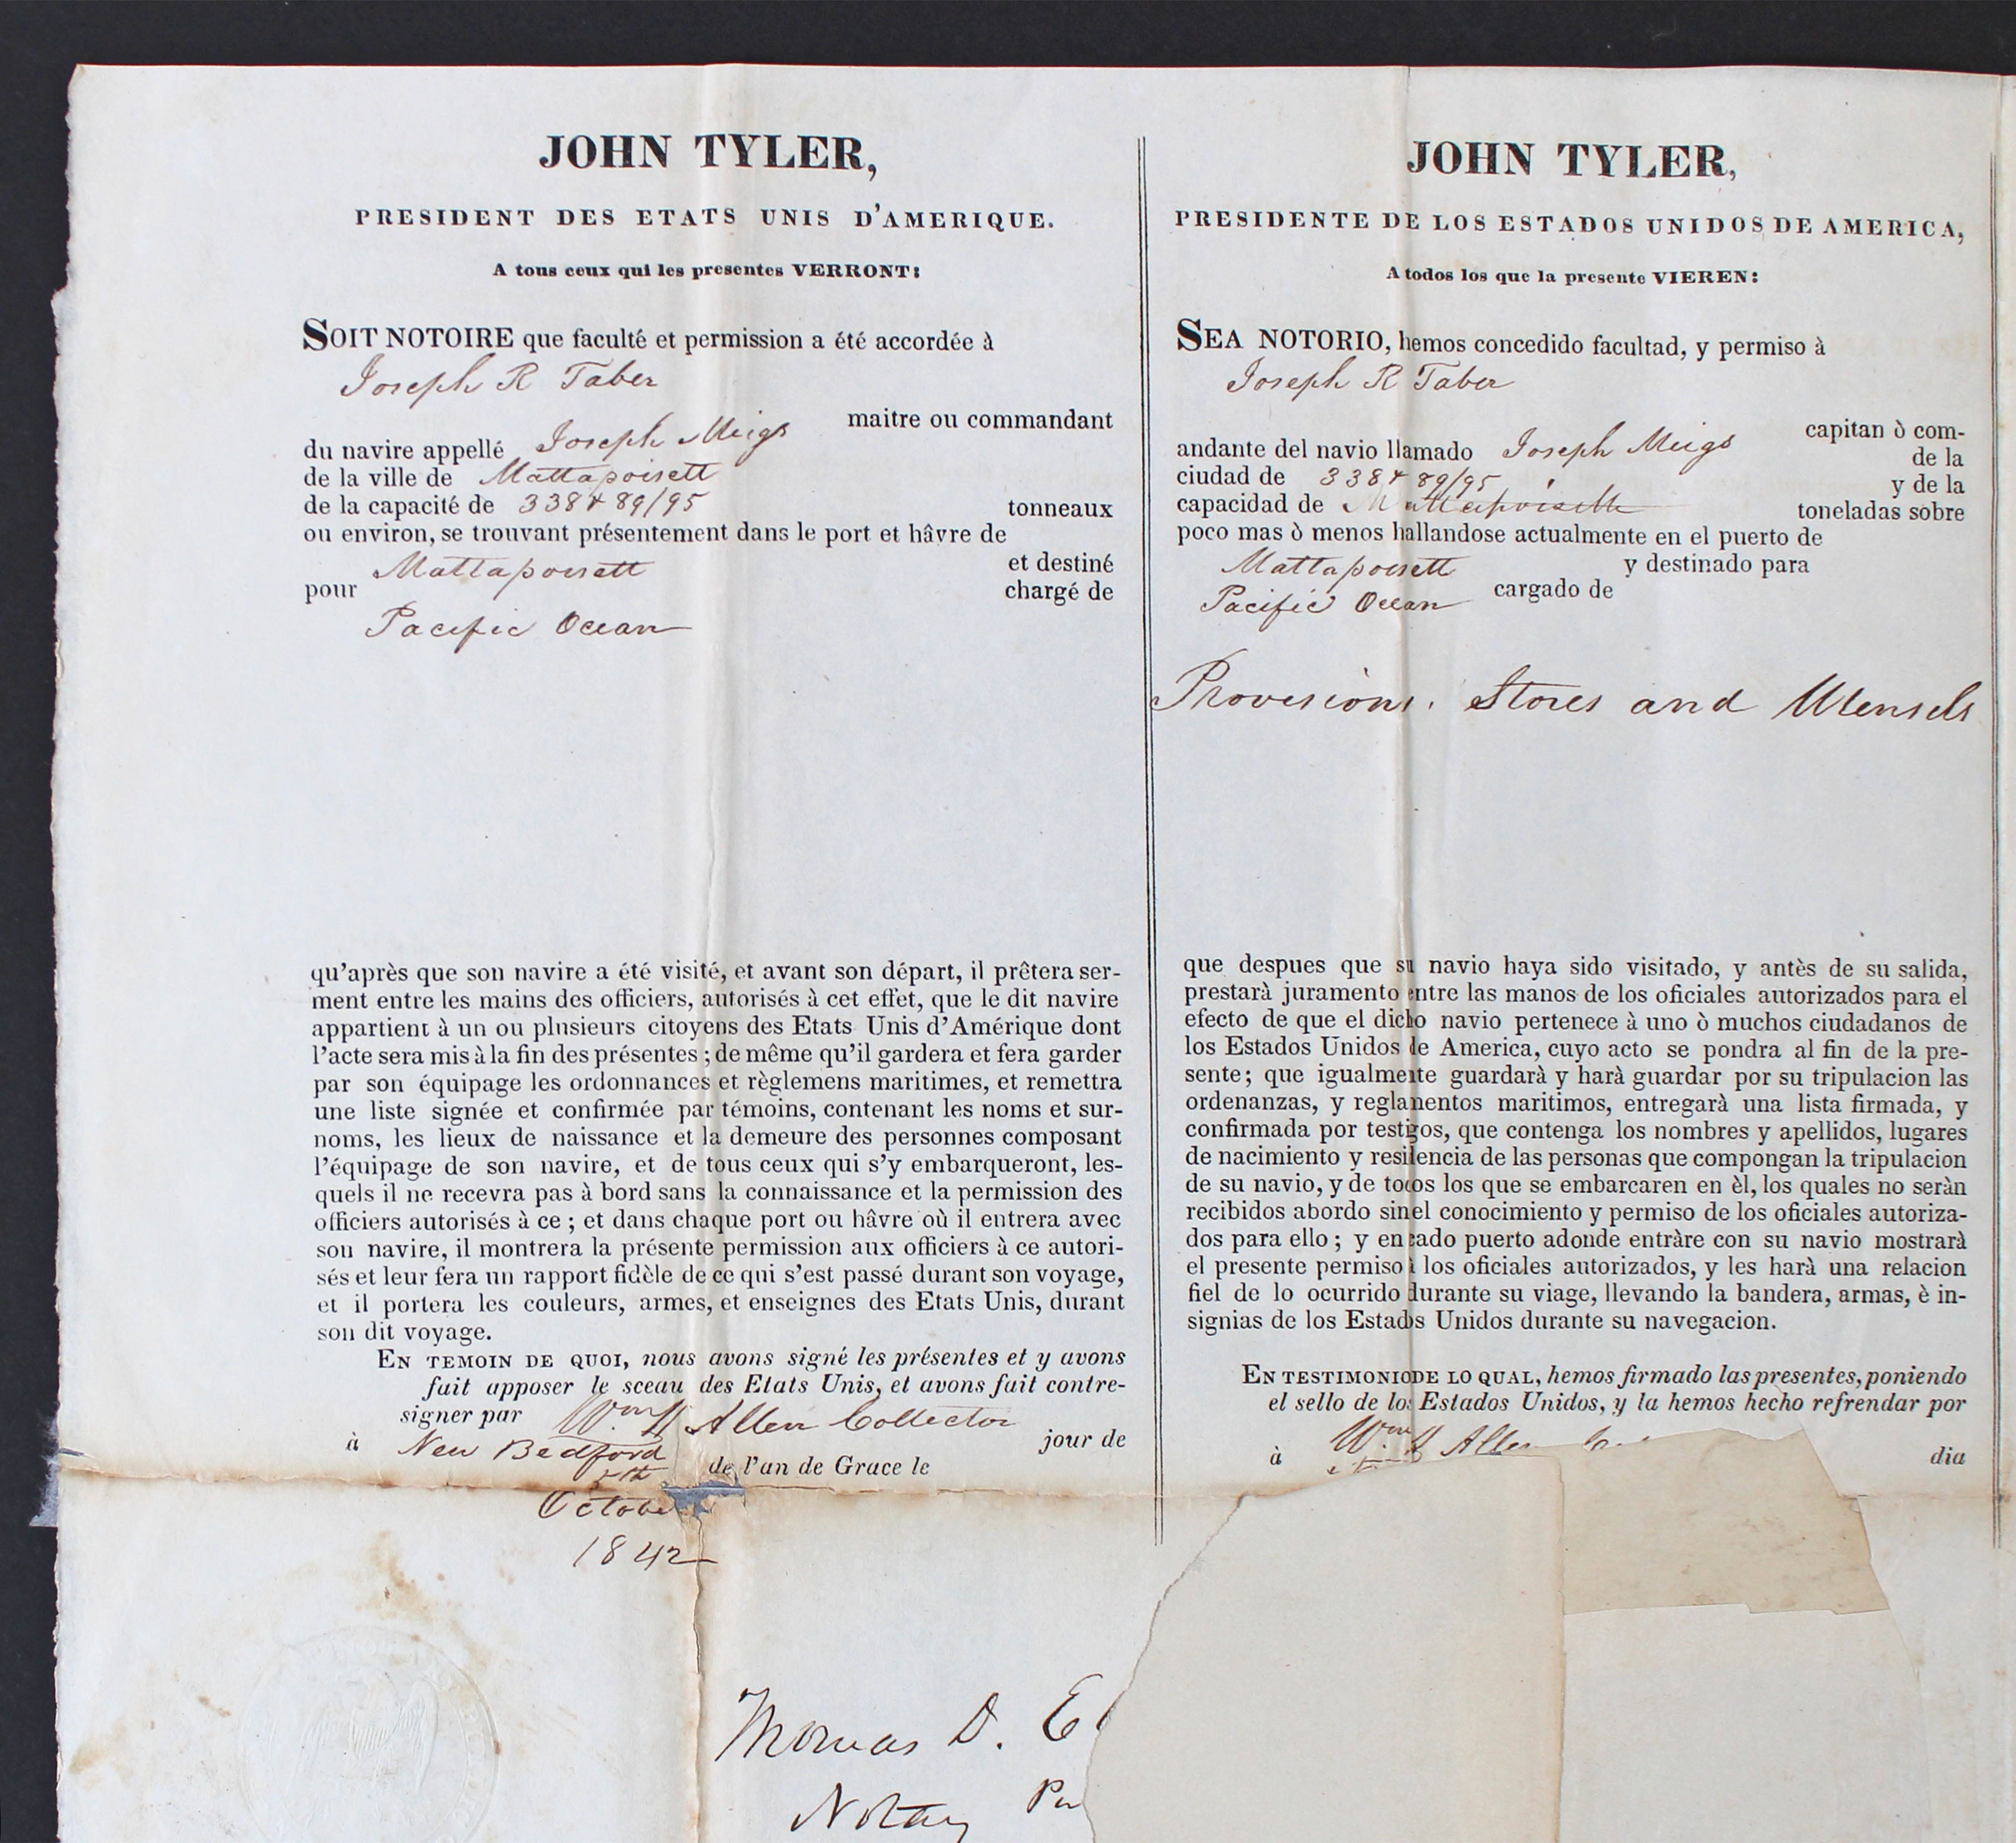 JOHN TYLER,
PRESIDENT DES ETATS UNIS D'AMERIQUE.
A tous ceux qui les presentes VERRONT:
SOIT NOTOIRE que faculté et permission a été accordée à
Joseph R Taber
maitre ou commandant
du navire appellé Joseph Meigs
de la ville de Mattapoisett
de la capacité de 338 & 89/95 tonneaux
ou environ, se trouvant présentement dans le port et hâvre de
Mattapoisett et destiné
pour chargé de
Pacific Ocean
qu'après que son navire a été visité, et avant son départ, il prêtera ser-
ment entre les mains des officiers, autorisés à cet effet, que le dit navire
appartient à un ou plusieurs citoyens des Etats Unis d'Amérique dont
l'acte sera mis à la fin des présentes ; de même qu'il gardera et fera garder
par son équipage les ordonnances et règlemens maritimes, et remettra
une liste signée et confirmée par témoins, contenant les noms et sur-
noms, les lieux de naissance et la demeure des personnes composant
l'équipage de son navire, et de tous ceux qui s'y embarqueront, les-
quels il ne recevra pas à bord sans la connaissance et la permission des
officiers autorisés à ce ; et dans chaque port ou hâvre où il entrera avec
son navire, il montrera la présente permission aux officiers à ce autori-
sés et leur fera un rapport fidèle de ce qui s'est passé durant son voyage,
et il portera les couleurs, armes, et enseignes des Etats Unis, durant
son dit voyage.
EN TEMOIN DE QUOI, nous avons signé les présentes et y avons
fait apposer le sceau des Etats Unis, et avons fait contre-
signer par Wm H Allen Collector
à New Bedford jour de
5th de l'an de Grace le
October
1842
Thomas D. El
Notary Pu
JOHN TYLER,
PRESIDENTE DE LOS ESTADOS UNIDOS DE AMERICA,
A todos los que la presente VIEREN:
SEA NOTORIO, hemos concedido facultad, y permiso à
Joseph R Taber
capitan ò com-
andante del navio llamado Joseph Meigs de la
ciudad de 338 & 89/95 y de la
capacidad de Mattapoisett toneladas sobre
poco mas ò menos hallandose actualmente en el puerto de
Mattapoisett y destinado para
Pacific Ocean cargado de
Provisions. Stores and Utensils
que despues que su navio haya sido visitado, y antès de su salida,
prestarà juramento entre las manos de los oficiales autorizados para el
efecto de que el dicho navio pertenece à uno ò muchos ciudadanos de
los Estados Unidos de America, cuyo acto se pondra al fin de la pre-
sente; que igualmente guardarà y harà guardar por su tripulacion las
ordenanzas, y reglamentos maritimos, entregarà una lista firmada, y
confirmada por testigos, que contenga los nombres y apellidos, lugares
de nacimiento y residencia de las personas que compongan la tripulacion
de su navio, y de todos los que se embarcaren en èl, los quales no seràn
recibidos abordo sin el conocimiento y permiso de los oficiales autoriza-
dos para ello ; y en cado puerto adonde entràre con su navio mostrarà
el presente permiso à los oficiales autorizados, y les harà una relacion
fiel de lo ocurrido durante su viage, llevando la bandera, armas, è in-
signias de los Estados Unidos durante su navegacion.
EN TESTIMONIO DE LO QUAL, hemos firmado las presentes, poniendo
el sello de los Estados Unidos, y la hemos hecho refrendar por
Wm H Allen
à dia